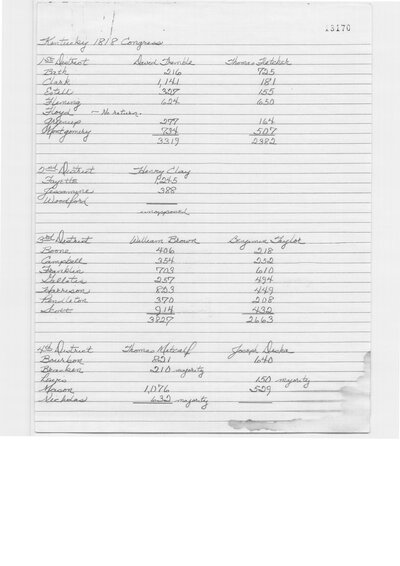 13170
Kentucky 1818 Congress
1st District David Tremble Thomas Fletcher
Bath 216 725
Clark 1,141 181
Estill 327 155
Fleming 624 650
Floyd - No return.
Greenup 277 164
Montgomery 734 507
3319 2382
2nd District Henry Clay
Fayette 1,245
Jessamyne 388
Woodford
unopposed
3rd District William Brown Benjamin Taylor
Boone 406 218
Campbell 354 252
Franklin 703 610
Gallatin 257 494
Harrison 823 449
Pendleton 370 208
Scott 914 432
3827 2663
4th District Thomas Metcalf Joseph Desha
Bourbon 821 640
Bracken 210 majority
Lewis 150 majority
Mason 1,076 529
Nicholas 632 majority